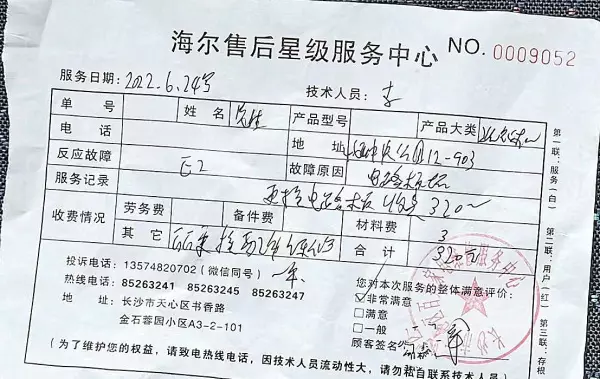 海尔售后星级服务中心 NO. 0009052
服务日期: 2022.6.24号 技术人员: 李
单号 姓名 产品型号 产品大类
电话 地址 12-903
反应故障 E2 故障原因 电路板坏
服务记录 更换电路板 收费 320
收费情况 劳务费 备件费 材料费 3
其它 合计 320元
投诉电话: 13574820702 (微信同号) 一年
热线电话: 85263241 85263245 85263247
地址: 长沙市天心区书香路
金石蓉园小区A3-2-101
您对本次服务的整体满意评价:
☑非常满意
□满意
□一般
顾客签名:
(为了维护您的权益,请致电热线电话,因技术人员流动性大,请勿私自联系技术人员)
第一联:服务(白) 第二联:用户(红) 第三联:存根